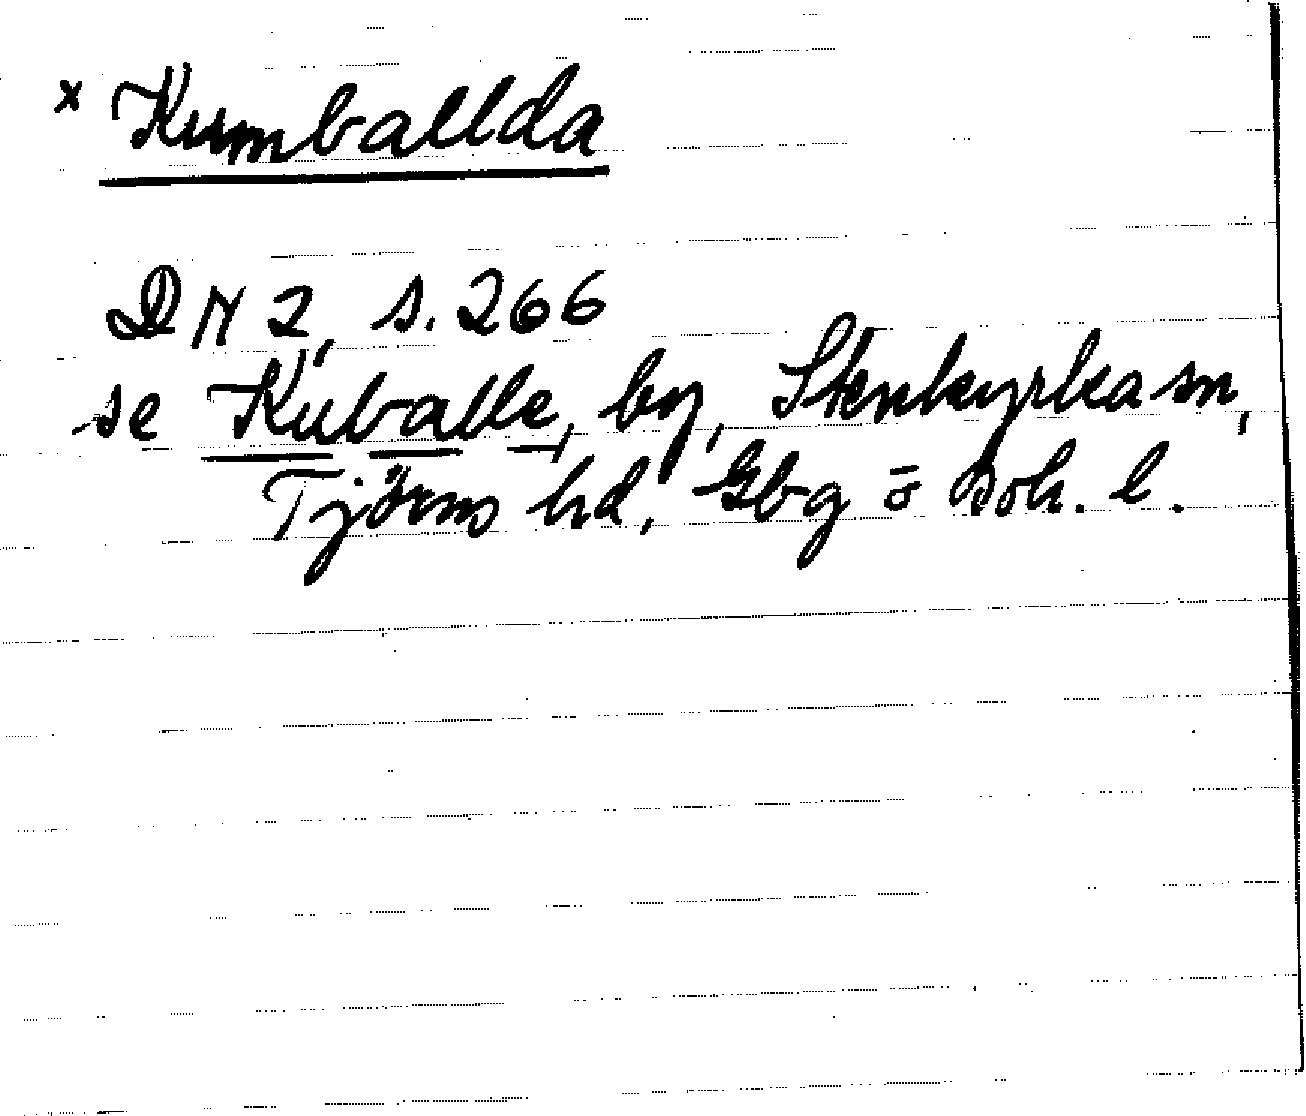 x Kumballda
DN 2, s. 266
se Kuballe, by, Stenkyrka sn,
Tjörns hd, Gbg o Boh. l.